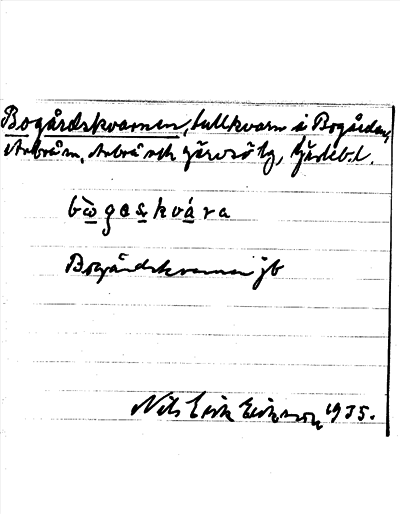 Bogårdskvarnen, tullkvarn i Bogården,
Arbrå sn, Arbrå och Järvsö tg, Gävleb.l.
bωgaskvara
Bogårdskvarnen jb
Nils Erik Eriksson 1935.